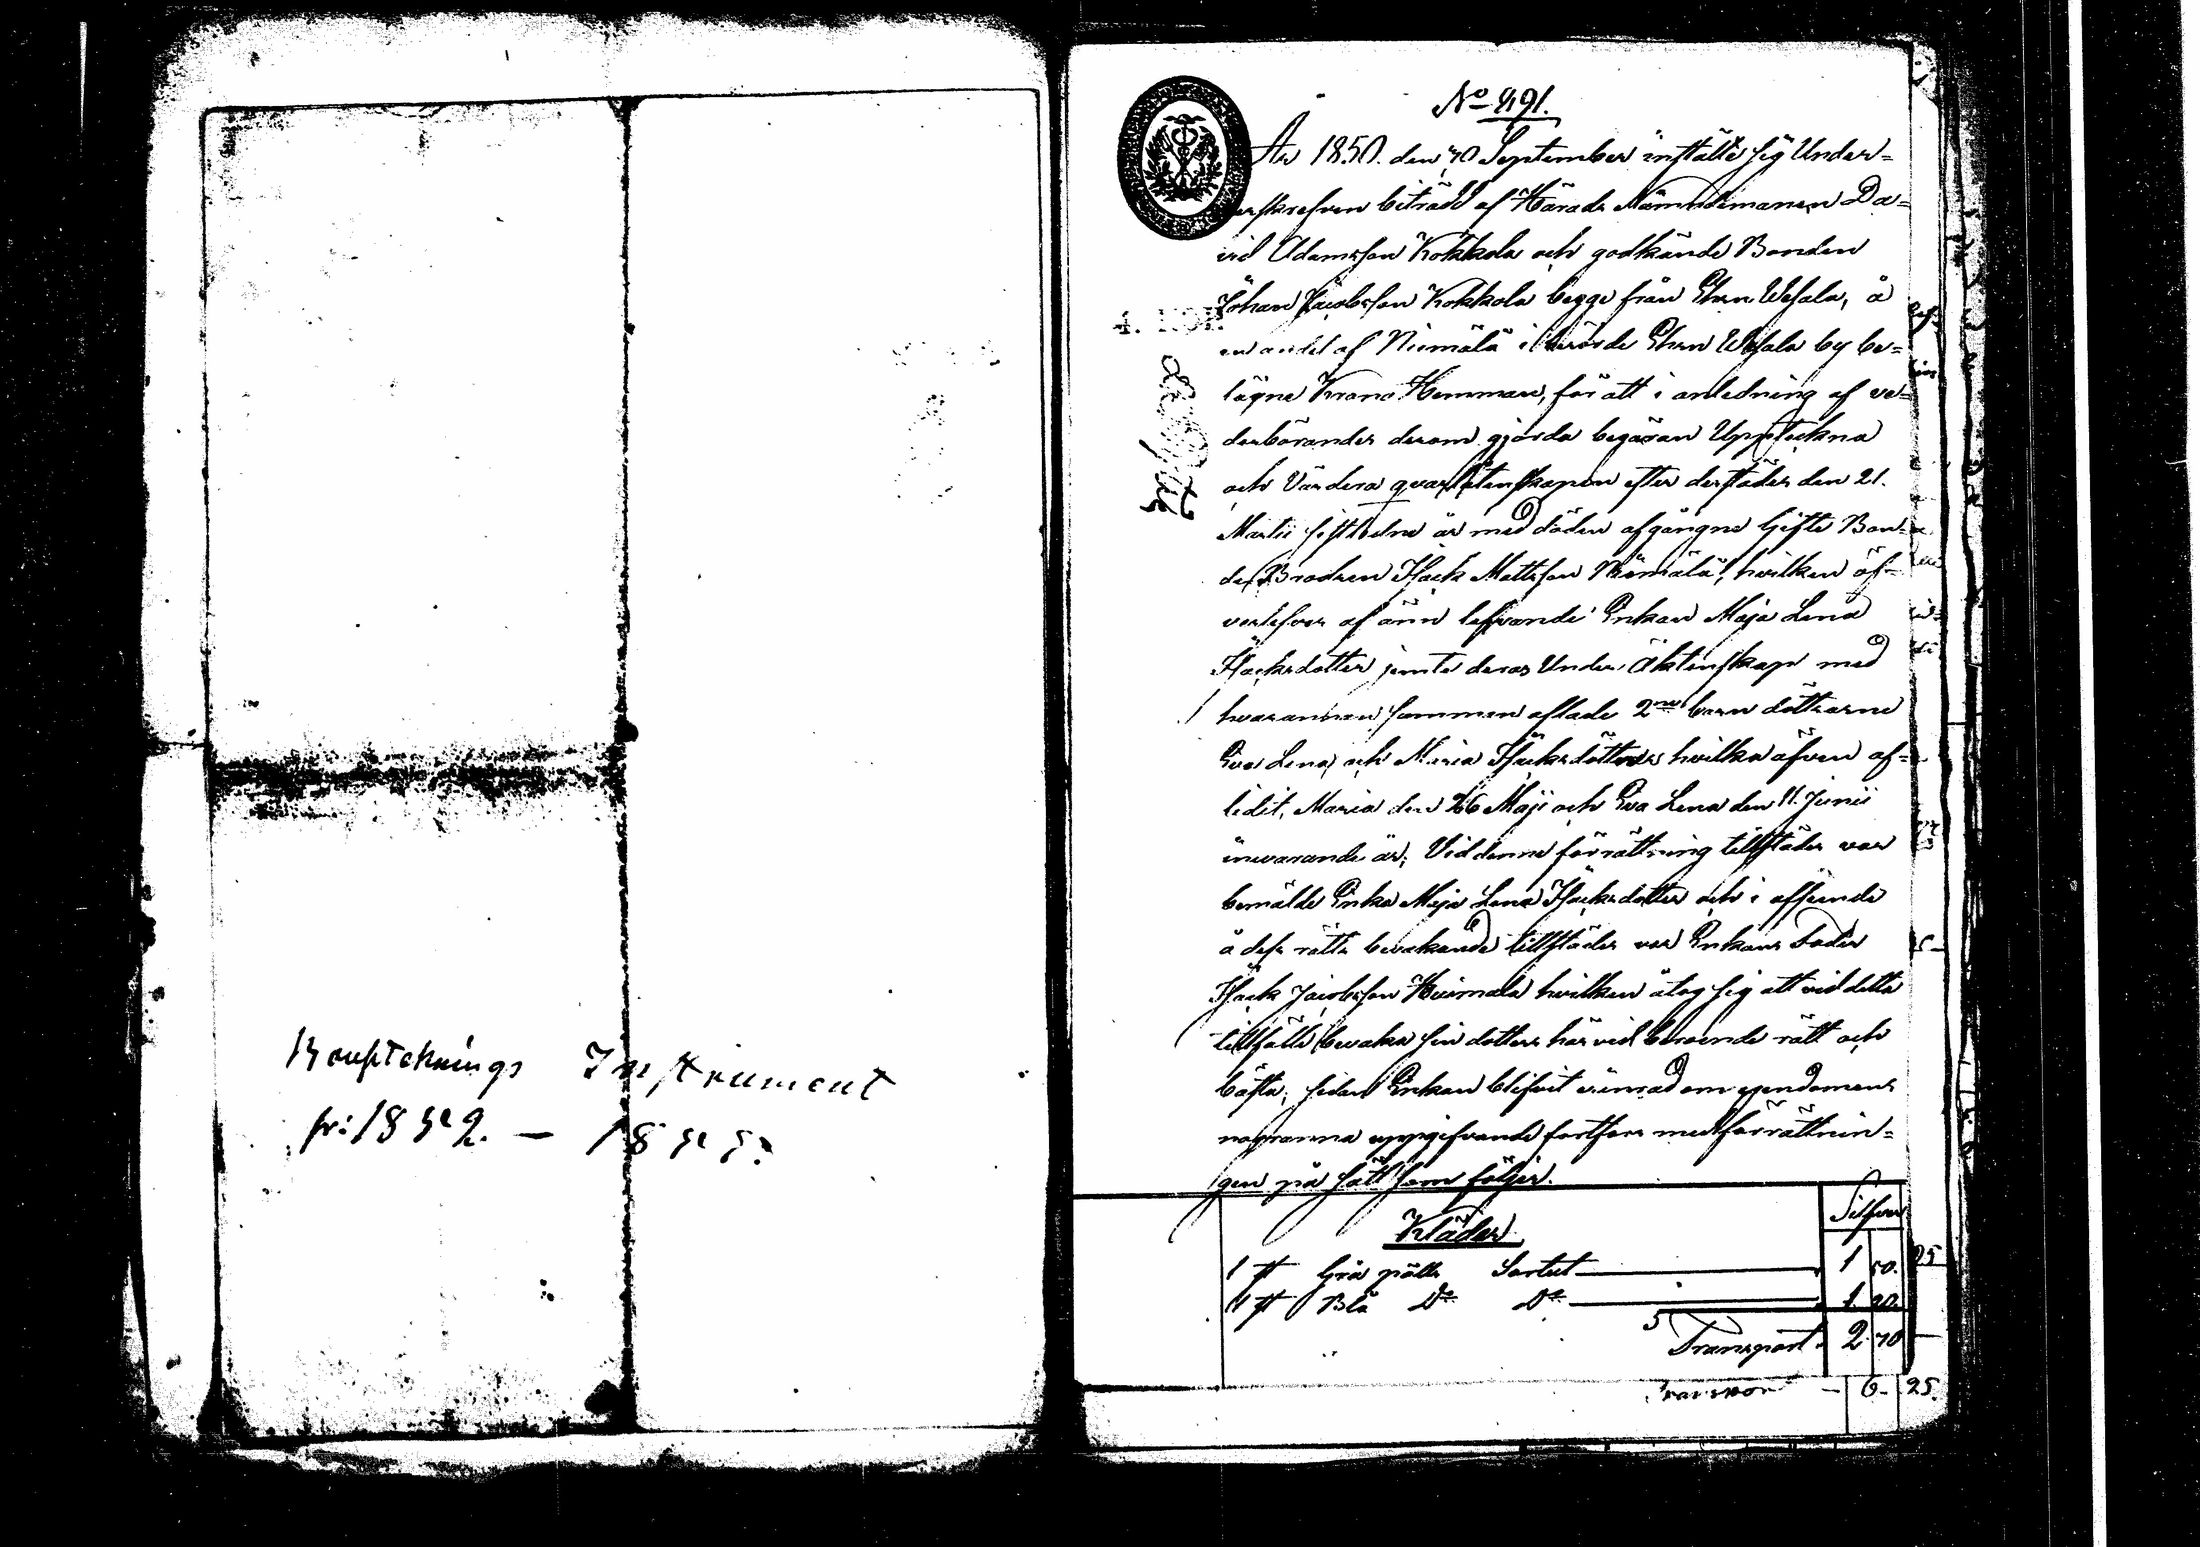 Bouptcknings Instrument
fr: 1852. — 1855.
No 491.
År 1850. den 30 September instälte sig Under=
serskrefven biträdd af Härads Nämndemannen Da=
vid Adamsson Kokkola och godkände Bonden
Johan Jacobsson Kokkola begge från Ehrn Wesala, å
en andel af Niemälä i berörde Ehrn Wesala by be=
lägne Krono Hemman, för att i anledning af ve=
derbörandes derom gjorda begäran Uppteckna
och Värdera qvarlåtenskapen efter derstädes den 21.
Martii sistledne år med döden afgångne Gifte Bon=
de Brodren Isack Mattsson Niemälä, hvilken öf=
verlefves af ännu lefvande Enkan Maja Lena
Isacksdotter jemte deras Under Äktenskap med
hvarannan samman aflade 2ne barn döttrarne
Eva Lena och Maria Isacksdöttrar hvilka äfven af=
lidit, Maria den 26 Maji och Eva Lena den 11. Junii
innevarande år; Vid denna förrättning tillstädes var
bemälde Enka Maja Lena Isacksdotter och i afseende
å dess rätts bevakande tillstädes var Enkans Fader
Isack Jacobsson Heimala hvilken åtog sig att vid detta
tillfälle bevaka sin dotters härvid beroende rätt och
bästa; sedan Enkan blifvit erinrad om egendomens
nogranna uppgifvande fortfors med förrättnin=
gen på sätt som följer.
Silfver
Kläder
1 st Grå pälts Sortut 1 50.
1 st Blå Do Do 1 20.
Transport. 2 70
Transport — 6 — 25.